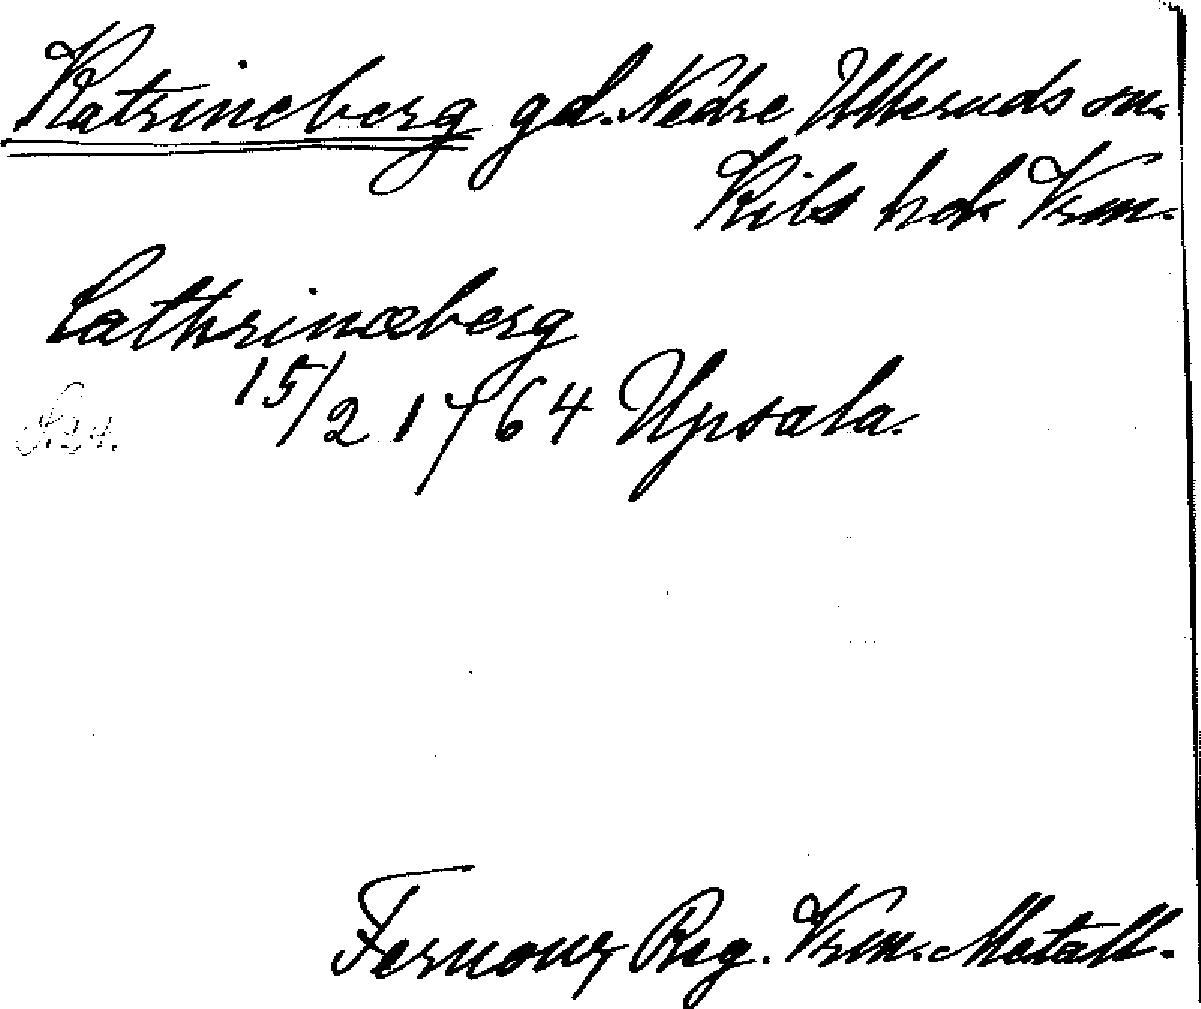 Katrineberg gd. Nedre Ulleruds sn.
Kils hd. Vrm.
Cathrinæberg
15/2 1764 Upsala.
Fernow, Reg. Vrm. Metall.